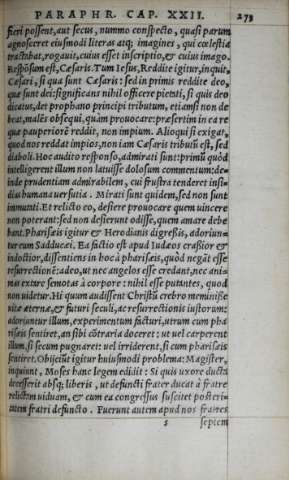 PARAPHR. CAP. XXII. 273
fieri possent, aut secus, nummo conspecto, quasi parum
agnosceret eiusmodi literas atq; imagines, qui cœlestia
tractabat, rogauit, cuius esset inscriptio, & cuius imago.
Respōsum est, Cæsaris. Tum Iesus, Reddite igitur, inquit,
Cæsari, si qua sunt Cæsaris: sed in primis reddite deo,
quæ sunt dei: significans nihil officere pietati, si quis deo
dicatus, det prophano principi tributum, etiamsi non de
beat, malēs obsequi, quàm prouocare: præsertim in ea re
quæ pauperiorē reddit, non impium. Alioqui si exigat,
quod nos reddat impios, non iam Cæsaris tributū est, sed
diaboli. Hoc audito responso, admirati sunt: primū quòd
intelligerent illum non latuisse dolosum commentum: de-
inde prudentiam admirabilem, cui frustra tenderet insi-
dias humana uersutia. Mirati sunt quidem, sed non sunt
immutati. Et relicto eo, desiere prouocare quem uincere
non poterant: sed non desierunt odisse, quem amare debe
bant. Pharisæis igitur & Herodianis digressis, adoriun-
tur eum Sadducæi. Ea factio est apud Iudæos crassior &
indoctior, dissentiens in hoc à pharisæis, quòd negāt esse
resurrectionē: adeo, ut nec angelos esse credant, nec ani-
mas extare semotas à corpore: nihil esse putantes, quod
non uidetur. Hi quum audissent Christū crebro meminisse
uitæ æternæ, & futuri seculi, ac resurrectionis iustorum:
adoriuntur illum, experimentum facturi, utrum cum pha
risæis sentiret, an sibi cōtraria doceret: ut uel carperent
illum, si secum pugnaret: uel irriderent, si cum pharisæis
sentiret. Obijciūt igitur huiusmodi problema: Magister,
inquiunt, Moses hanc legem edidit: Si quis uxore ducta
decesserit absq; liberis, ut defuncti frater ducat à fratre
relictam uiduam, & cum ea congressus suscitet posteri-
tatem fratri defuncto. Fuerunt autem apud nos fratres
s septem